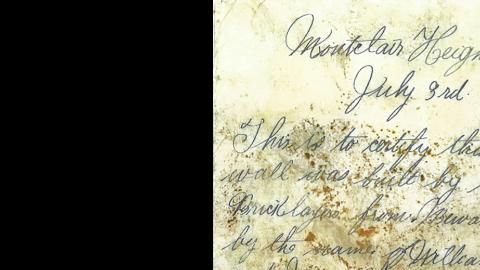 Montclair Heigh
July 3rd.
This is to certify tha
wall was built by
Bricklayer from Newar
by the name of Willia